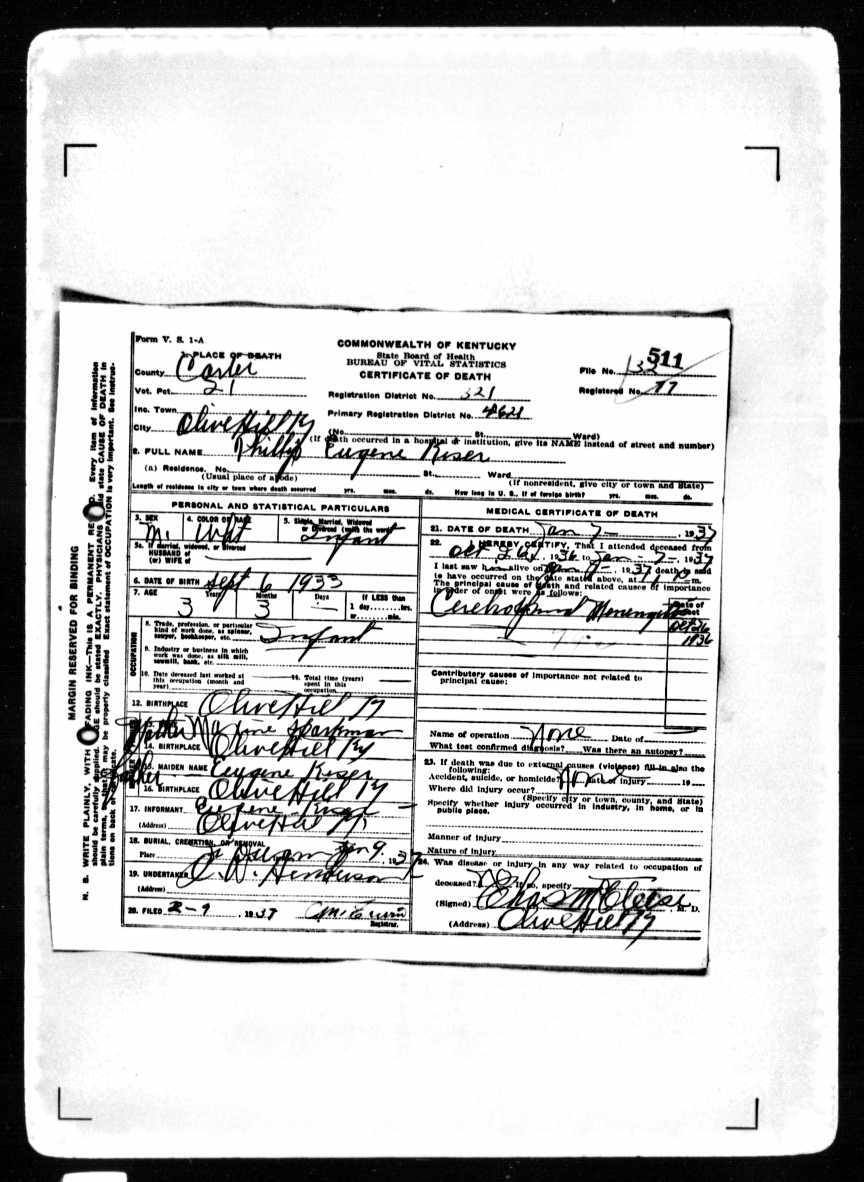 Form V. S. 1-A
COMMONWEALTH OF KENTUCKY
State Board of Health
BUREAU OF VITAL STATISTICS
CERTIFICATE OF DEATH
File No. 511
Registered No. 77
1. PLACE OF DEATH
County Carter
Vot. Pct. 21
Registration District No. 321
Inc. Town
Primary Registration District No. 4621
City Olive Hill Ky (No. St. Ward)
(If death occurred in a hospital or institution, give its NAME instead of street and number)
2. FULL NAME Phillip Eugene Kiser
(a) Residence. No. St., Ward
(Usual place of abode) (If nonresident, give city or town and State)
Length of residence in city or town where death occurred yrs. mos. ds. How long in U. S., if of foreign birth? yrs. mos. ds.
PERSONAL AND STATISTICAL PARTICULARS
3. SEX M. 4. COLOR OR RACE Wht 5. Single, Married, Widowed or Divorced (write the word) Infant
5a. If married, widowed, or divorced
HUSBAND of
(or) WIFE of
6. DATE OF BIRTH Sept 6 1933
7. AGE Years 3 Months 3 Days If LESS than
1 day hrs.
or min.
OCCUPATION
8. Trade, profession, or particular kind of work done, as spinner, sawyer, bookkeeper, etc. Infant
9. Industry or business in which work was done, as silk mill, sawmill, bank, etc.
10. Date deceased last worked at this occupation (month and year)
11. Total time (years) spent in this occupation
12. BIRTHPLACE Olive Hill Ky
Mother Maxine Sparkman
14. BIRTHPLACE Olive Hill Ky
Father
15. MAIDEN NAME Eugene Kiser
16. BIRTHPLACE Olive Hill Ky
17. INFORMANT Eugene Kiser
(Address) Olive Hill Ky
18. BURIAL, CREMATION, OR REMOVAL
Place Jan 9, 1937
19. UNDERTAKER J. W. Henderson
(Address)
20. FILED 2-9, 1937
Registrar.
MEDICAL CERTIFICATE OF DEATH
21. DATE OF DEATH Jan 7-, 1937
22. I HEREBY CERTIFY, That I attended deceased from
Oct 26, 1936 to Jan-7-, 1937
I last saw him alive on Jan 7-, 1937 death is said
to have occurred on the date stated above, at m.
The principal cause of death and related causes of importance
in order of onset were as follows:
Cerebrospinal Menengitis
Date of onset
Oct 26
1936
Contributory causes of importance not related to
principal cause:
Name of operation None Date of
What test confirmed diagnosis? Was there an autopsy?
23. If death was due to external causes (violence) fill in also the following:
Accident, suicide, or homicide? Date of injury 19
Where did injury occur?
(Specify city or town, county, and State)
Specify whether injury occurred in industry, in home, or in
public place.
Manner of injury
Nature of injury
24. Was disease or injury in any way related to occupation of
deceased? No If so, specify
(Signed) Chas M Cleese, M. D.
(Address) Olive Hill Ky
MARGIN RESERVED FOR BINDING